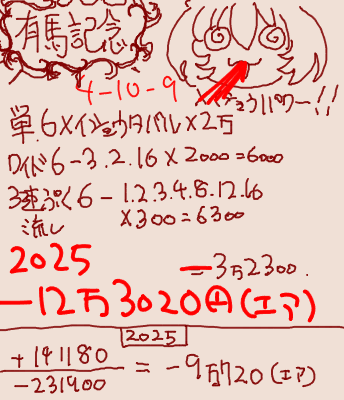 有馬記念
4-10-9
チョコパワー!!
単.6×イショウタバル×2万
ワイド6-3.2.16×2000=6000
3連ぷく6-1.2.3.4.8.12.16
流し ×300=6300
2025 -3万2300.
-12万3020円(エア)
2025
+141180
-231900
= -9万720(エア)